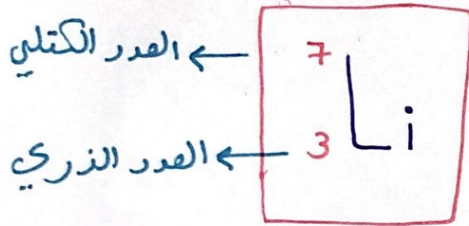 العدد الكتلي ← 7
Li
العدد الذري ← 3